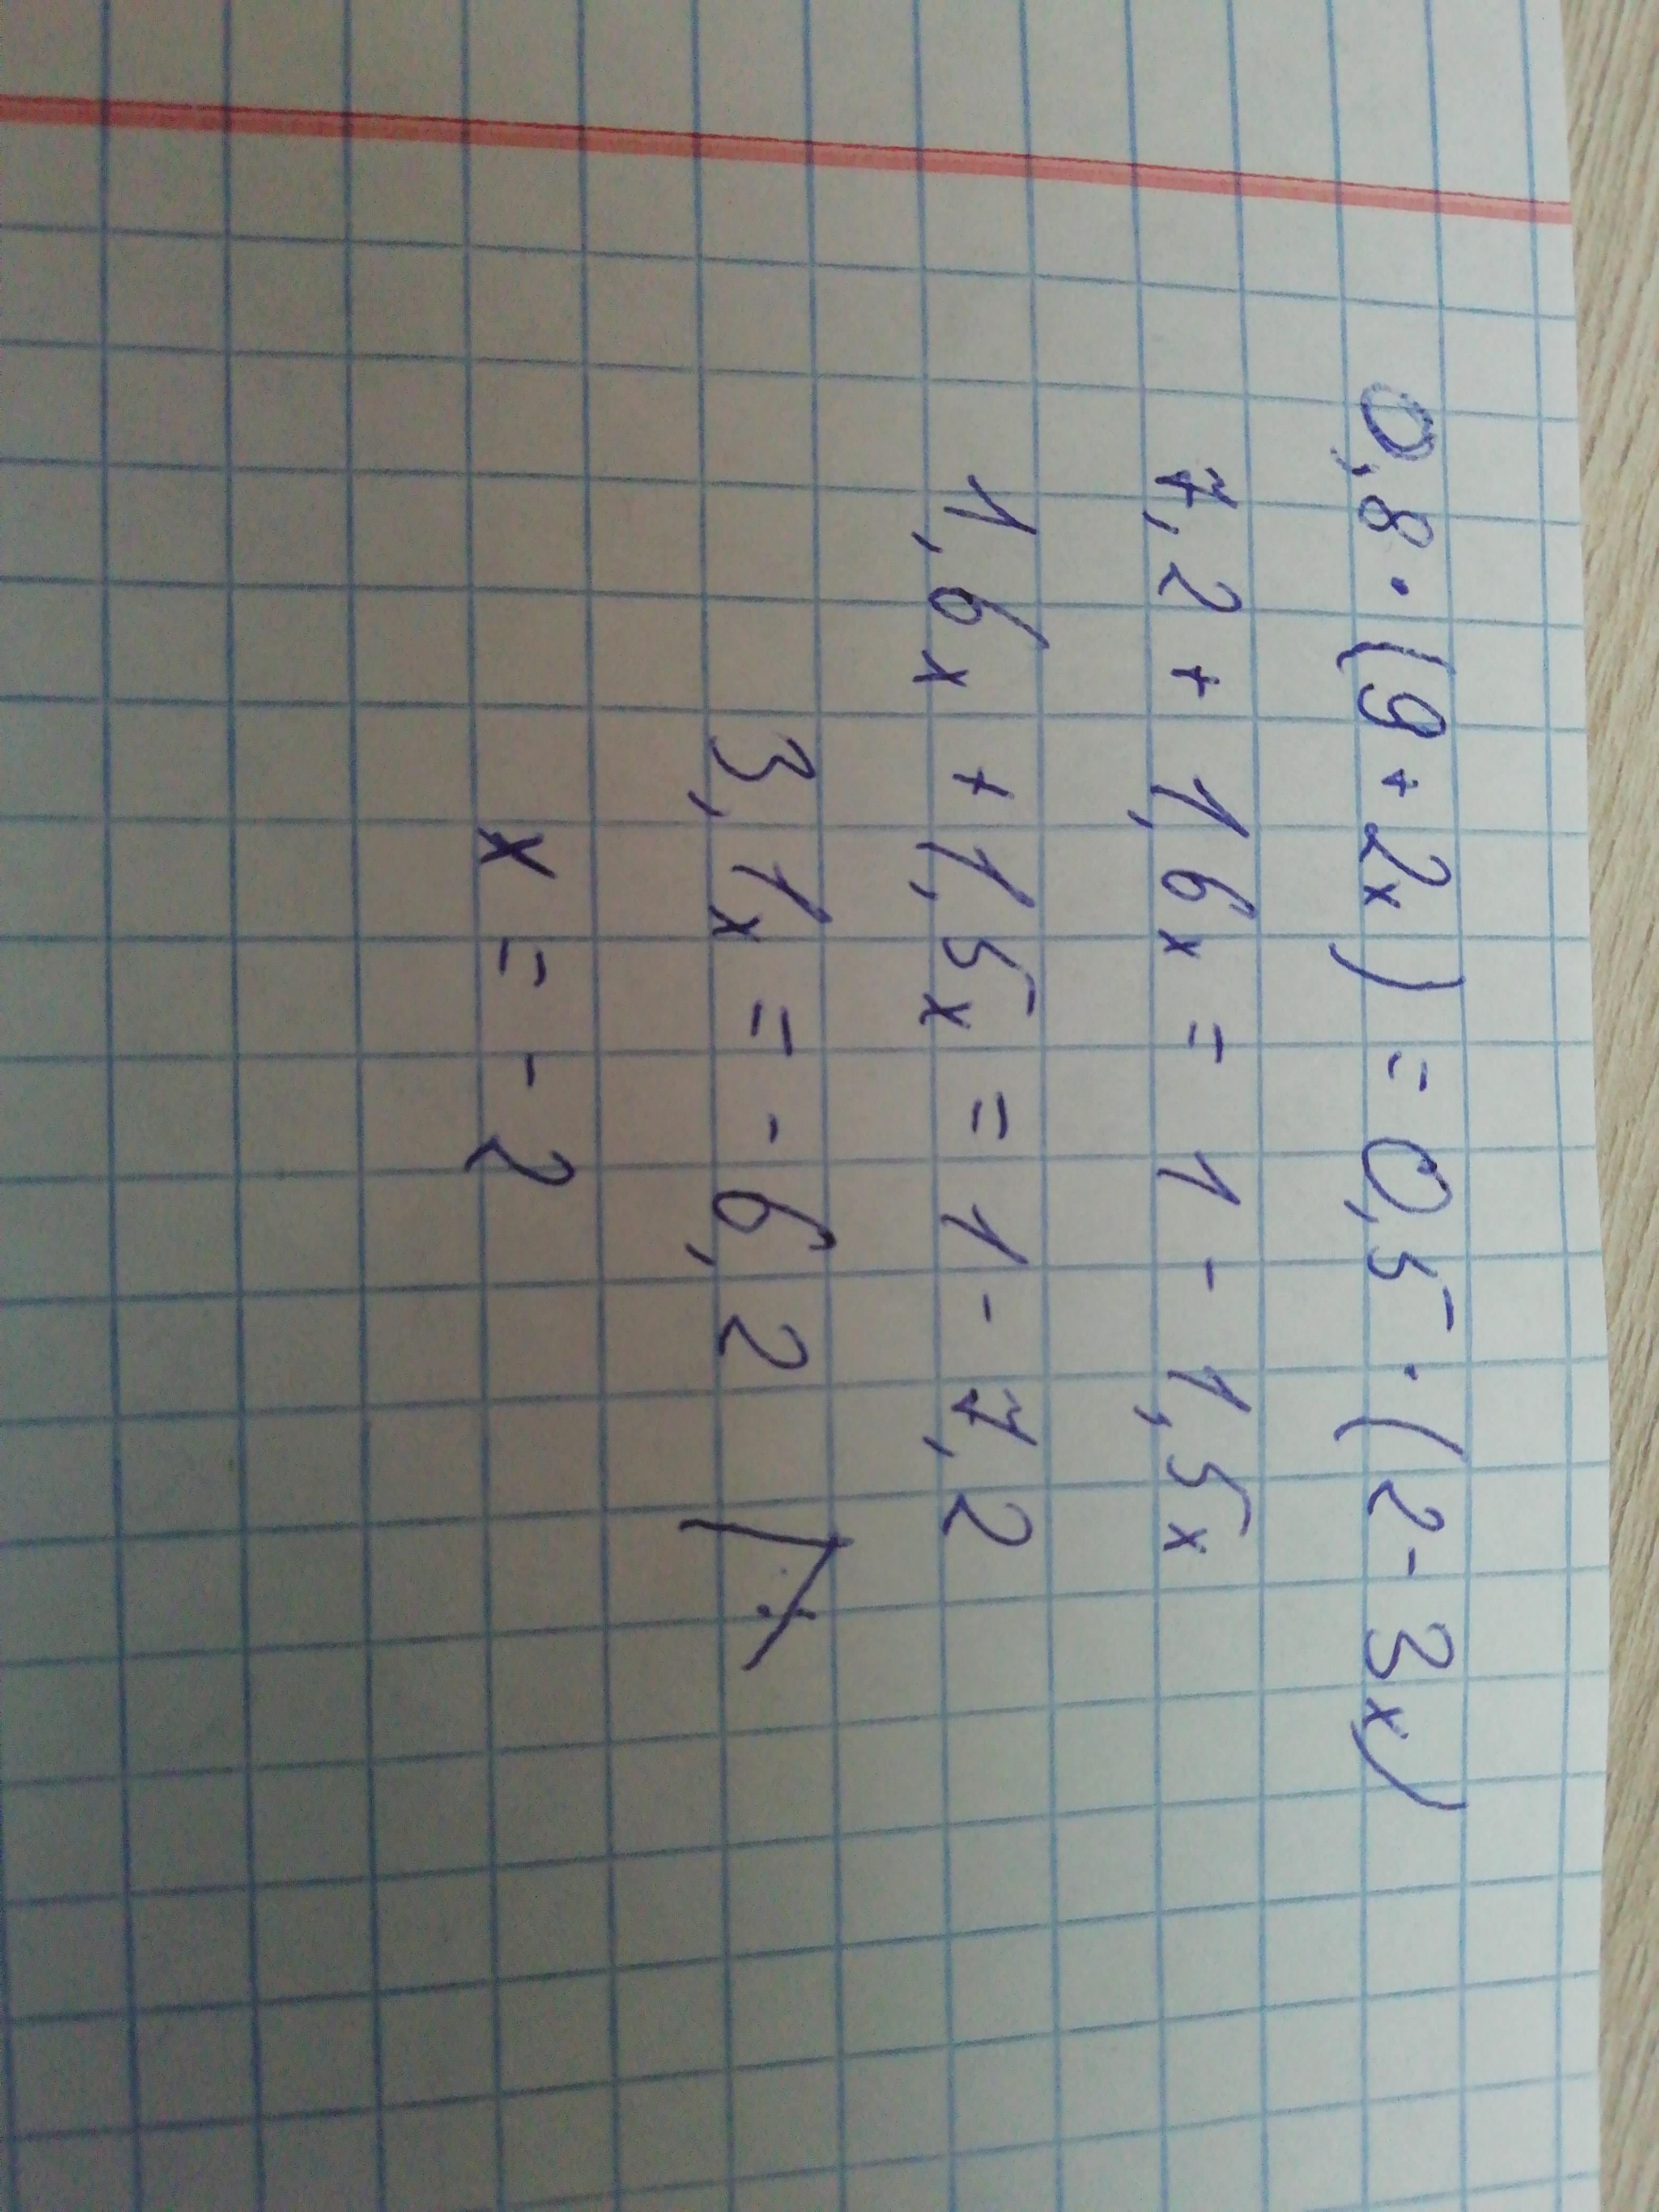 0,8 · (9 + 2x) = 0,5 · (2 - 3x)
7,2 + 1,6x = 1 - 1,5x
1,6x + 1,5x = 1 - 7,2
3,1x = - 6,2 | :
x = - 2